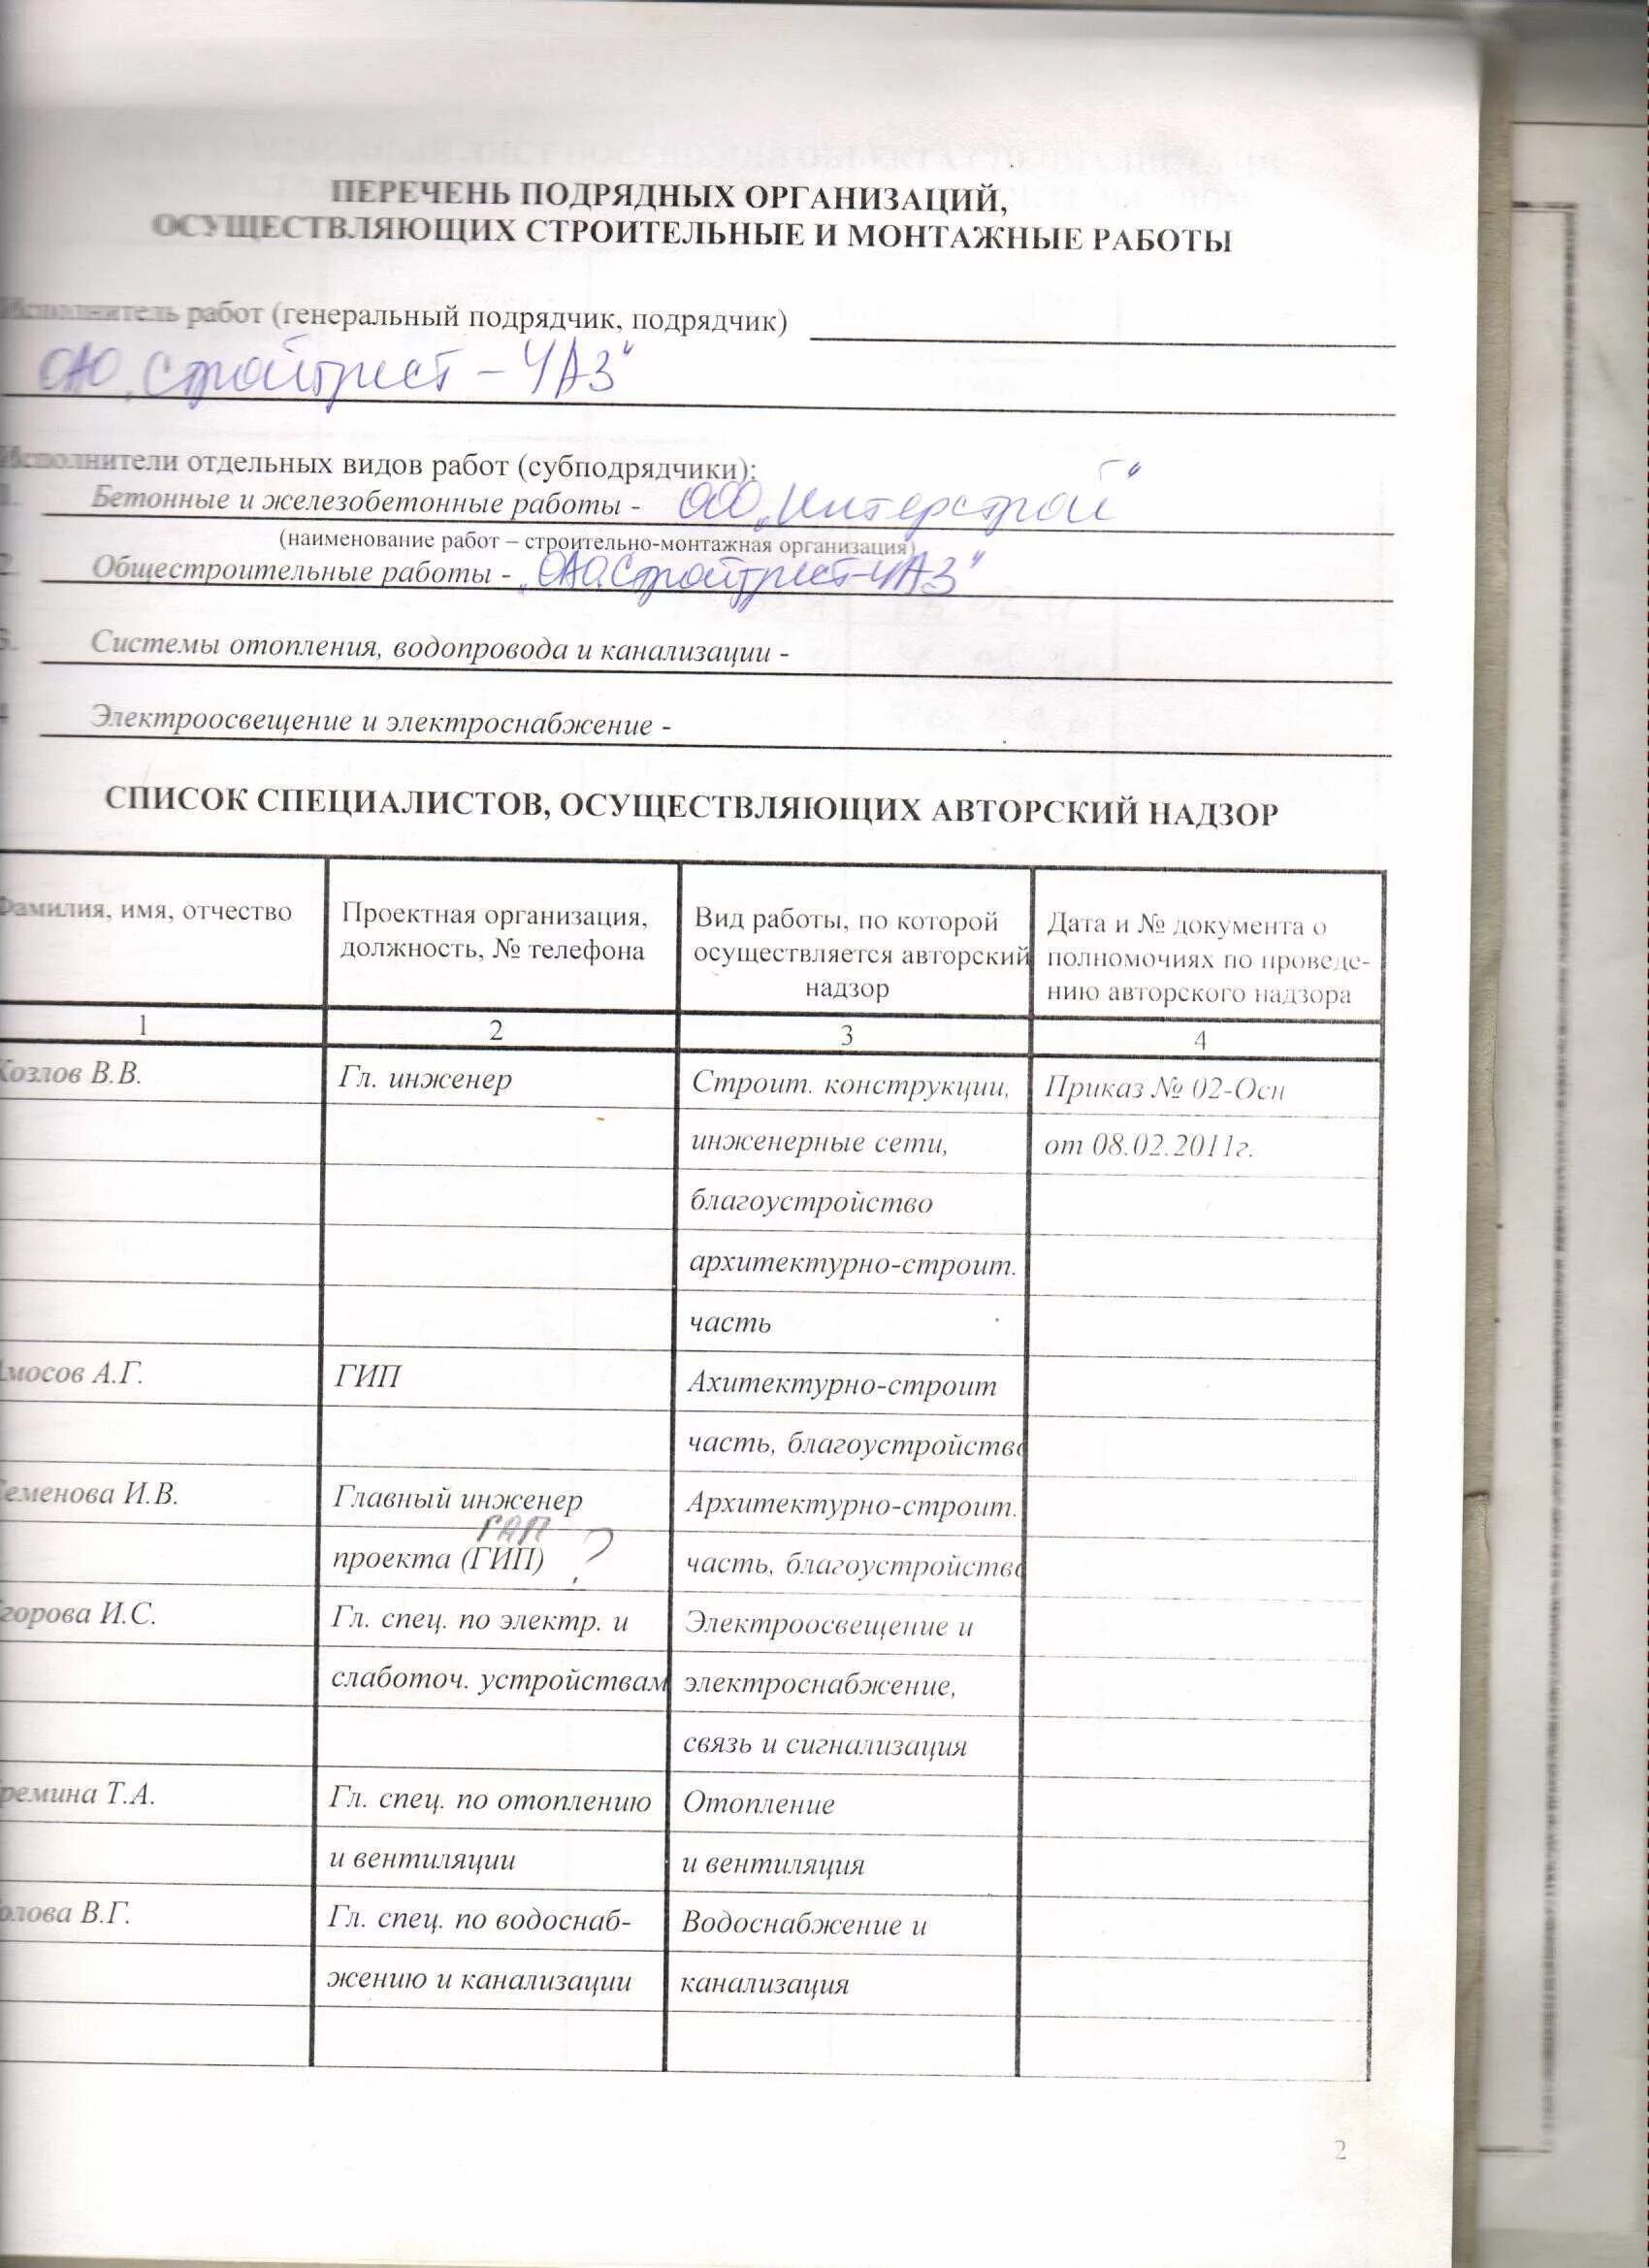 ПЕРЕЧЕНЬ ПОДРЯДНЫХ ОРГАНИЗАЦИЙ,
ОСУЩЕСТВЛЯЮЩИХ СТРОИТЕЛЬНЫЕ И МОНТАЖНЫЕ РАБОТЫ
Исполнитель работ (генеральный подрядчик, подрядчик)
ОАО „Стройтрест – ЧАЗ"
Исполнители отдельных видов работ (субподрядчики):
1. Бетонные и железобетонные работы - ООО „Интерстрой"
(наименование работ – строительно-монтажная организация)
2. Общестроительные работы - „ОАО Стройтрест-ЧАЗ"
3. Системы отопления, водопровода и канализации -
4 Электроосвещение и электроснабжение -
СПИСОК СПЕЦИАЛИСТОВ, ОСУЩЕСТВЛЯЮЩИХ АВТОРСКИЙ НАДЗОР
Фамилия, имя, отчество Проектная организация, Вид работы, по которой Дата и № документа о
должность, № телефона осуществляется авторский полномочиях по проведе-
надзор нию авторского надзора
1 2 3 4
Козлов В.В. Гл. инженер Строит. конструкции, Приказ № 02-Осн
инженерные сети, от 08.02.2011г.
благоустройство
архитектурно-строит.
часть
мосов А.Г. ГИП Ахитектурно-строит
часть, благоустройство
Семенова И.В. Главный инженер Архитектурно-строит.
ГАП
проекта (ГИП) ? часть, благоустройство
горова И.С. Гл. спец. по электр. и Электроосвещение и
слаботоч. устройствам электроснабжение,
связь и сигнализация
ремина Т.А. Гл. спец. по отоплению Отопление
и вентиляции и вентиляция
олова В.Г. Гл. спец. по водоснаб- Водоснабжение и
жению и канализации канализация
2